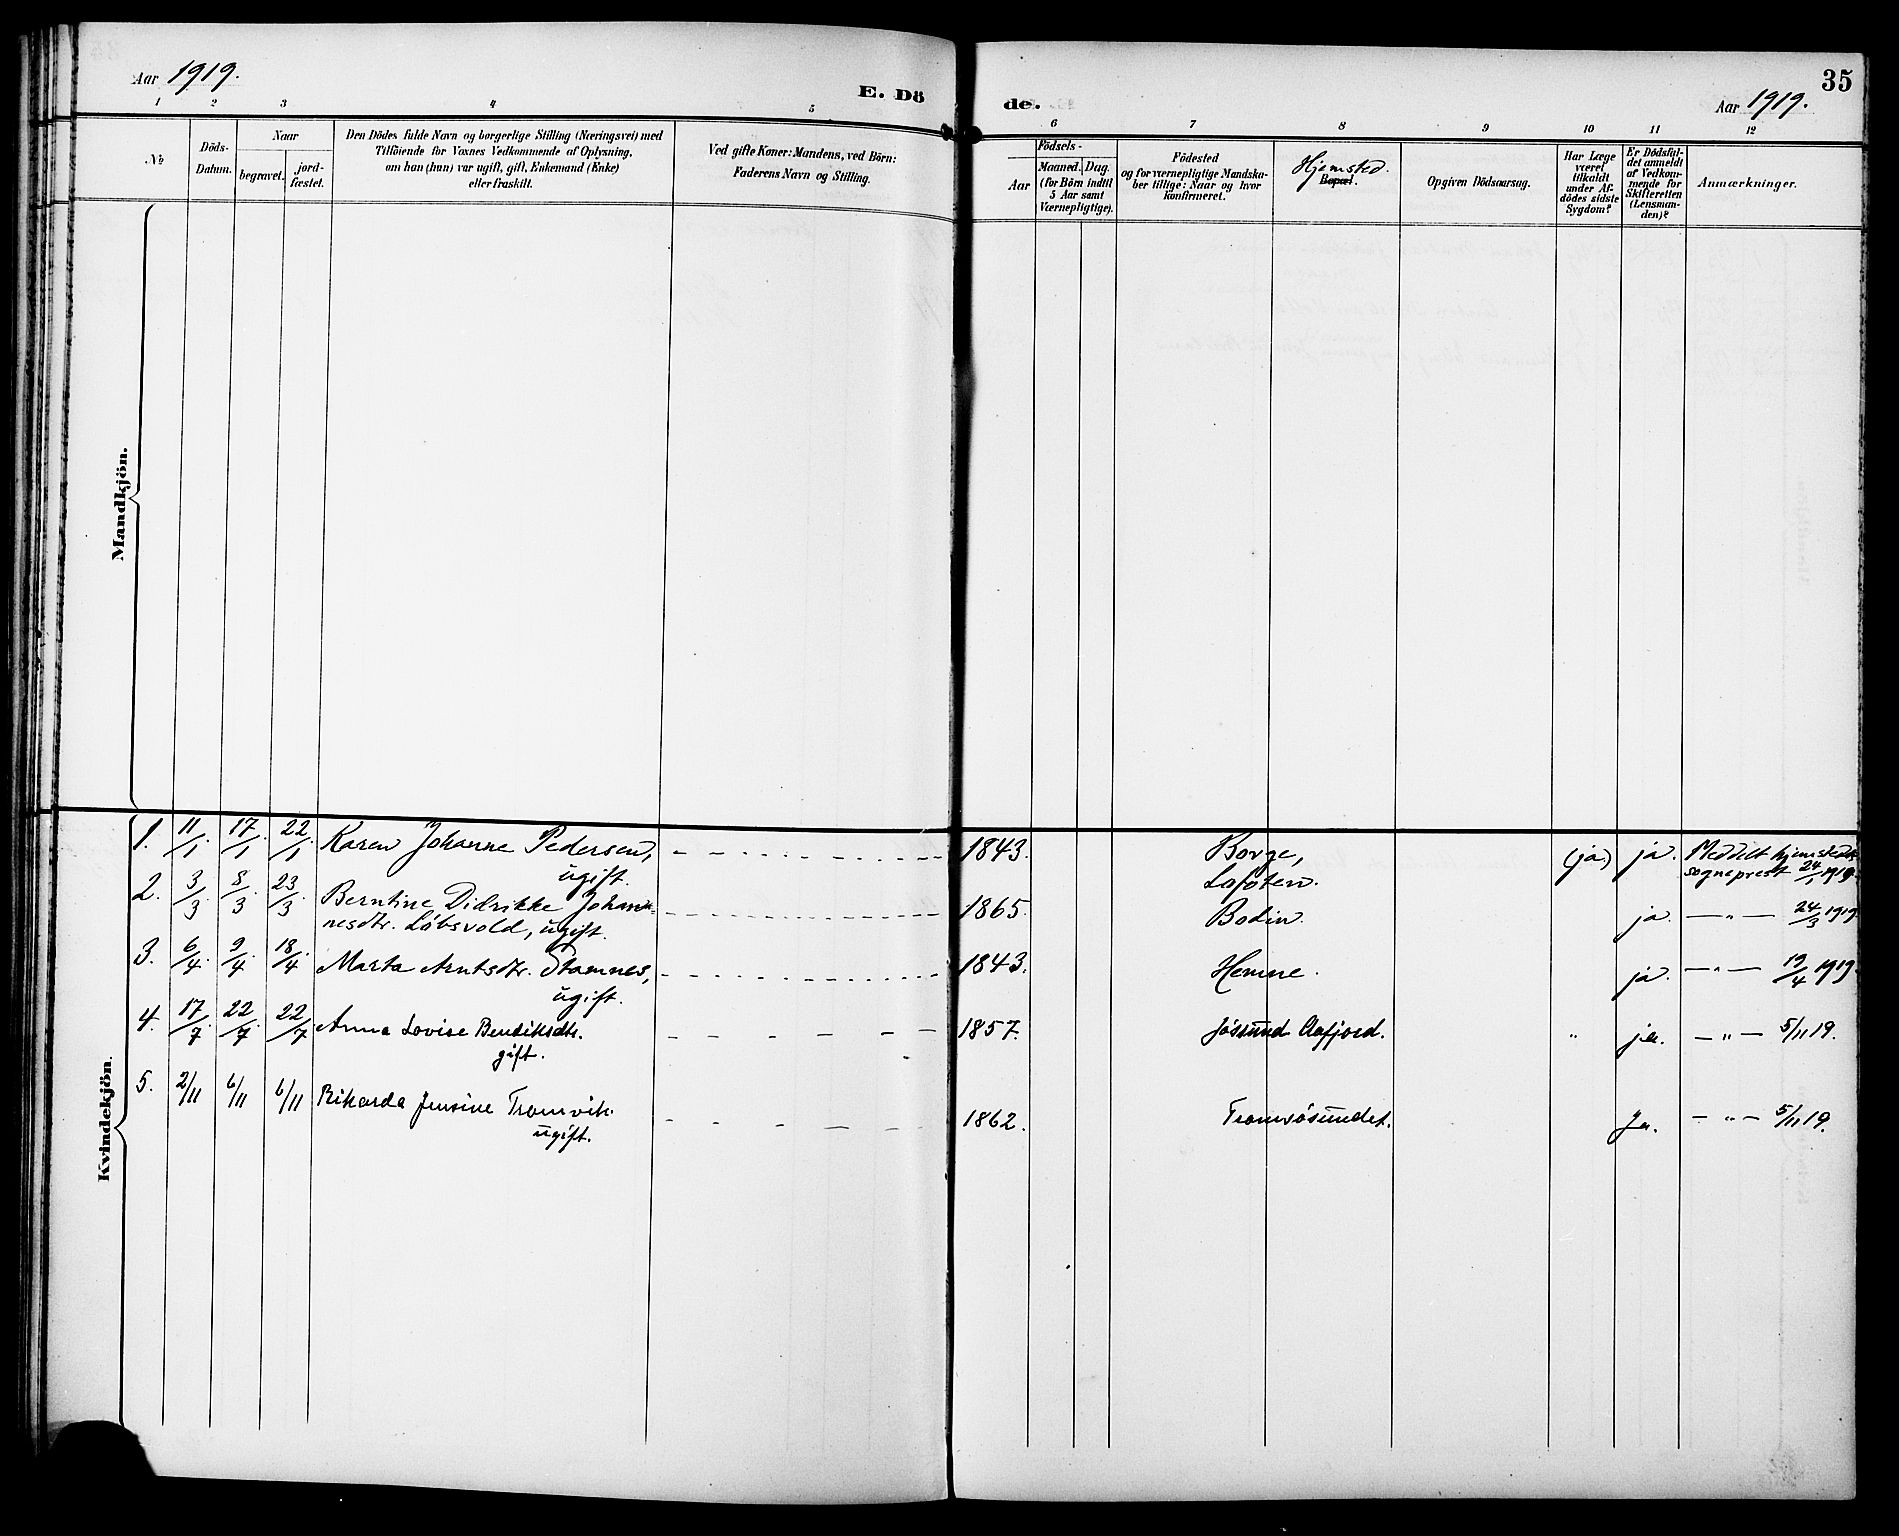 Aar 1919.
E. Dö
de.
35
Aar 1919.
1 2 3 4 5 6 7 8 9 10 11 12
№
Döds-
Datum.
Naar
begravet.
jord-
fæstet.
Den Dödes fulde Navn og borgerlige Stilling (Næringsvei) med
Tilföiende for Voxnes Vedkommende af Oplysning,
om han (hun) var ugift, gift, Enkemand (Enke)
eller fraskilt.
Ved gifte Koner: Mandens, ved Börn:
Faderens Navn og Stilling.
Födsels-
Aar
Maaned. Dag.
(for Börn indtil
5 Aar samt
Værnepligtige).
Födested
og for værnepligtige Mandska-
ber tillige: Naar og hvor
konfirmeret.
Hjemsted.
Bopæl.
Opgiven Dödsaarsag.
Har Læge
været
tilkaldt
under Af-
dödes sidste
Sygdom?
Er Dödsfal-
det anmeldt
af Vedkom-
mende for
Skifteretten
(Lensman-
den)?
Anmærkninger.
Mandkjön.
Kvindekjön.
1. 11/1. 17/1. 22/1. Karen Johanne Pedersen, 1843. Borge, (ja.) ja. Meddelt hjemstedets
ugift. Lofoten. sogneprest 24/1 1919.
2. 3/3. 8/3. 23/3. Berntine Didrikke Johan- 1865. Bodin. ja. —"— 24/3 1919.
nesdtr. Löbsvold, ugift.
3. 6/4. 9/4. 18/4. Marta Arntsdtr. Stamnes, 1843. Hemne. ja. —"— 19/4 1919.
ugift.
4. 17/7. 22/7. 22/7. Anna Lovise Bendiksdtr. 1857. Jössund Aafjord. " ja. —"— 5/11 19.
gift.
5. 2/11 6/11 6/11 Rikarda Jensine Tromvik. 1862. Tromsösundet. Ja. —"— 5/11 19.
ugift.